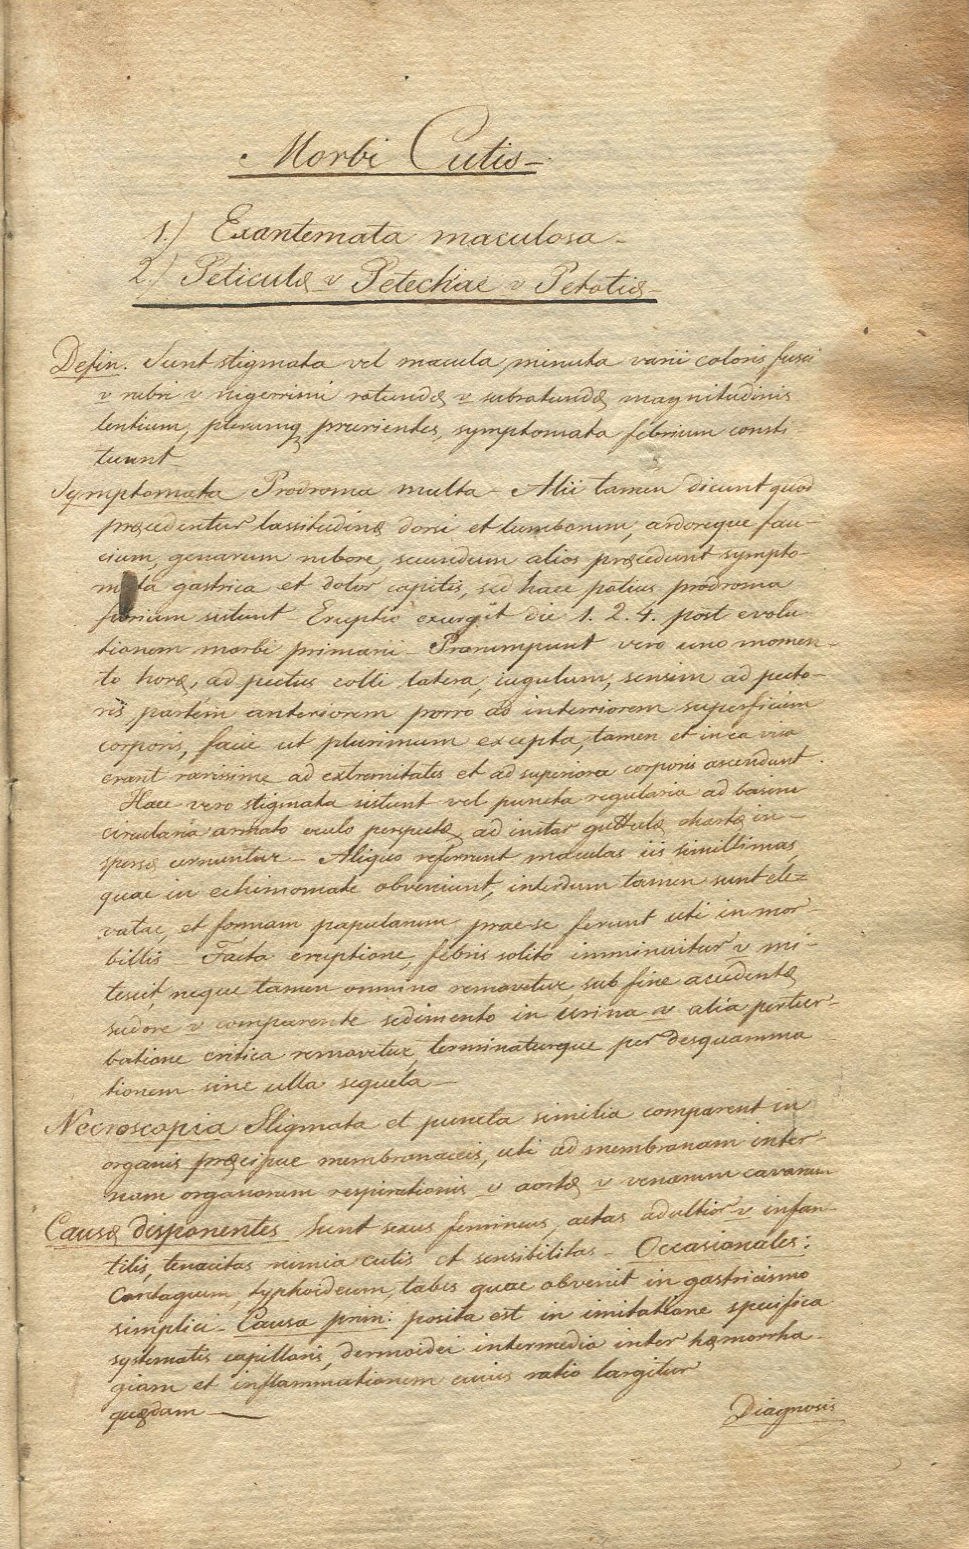 Morbi Cutis
1.) Exantemata maculosa
2.) Peticulæ v Petechiae v Petotiæ
Defin. Sunt stigmata vel macula, minuta varii coloris fusci
v rubri v nigerrimi rotundæ v subrotundæ magnitudinis
lentium, plerumq prurientes, symptomata febrium consti
tuunt
Symptomata Prodroma multa – Alii tamen dicunt quod
præcedentur lassitudinæ dorsi et lumborum, ardoreque fau-
cium, genarum rubore, secundum alios præcedunt sympto-
mata gastrica et dolor capitis, sed haec potius prodroma
febrium sistunt – Eruptio exurgit die 1. 2. 4. post evolu-
tionem morbi primarii – Prorumpunt vero uno momen-
to horæ, ad pectus colli latera, iugulum, sensim ad pecto-
ris partem anteriorem porro ad interiorem superficiem
corporis, facie ut plurimum excepta, tamen et in ea visa
erant rarissime ad extremitates et ad superiora corporis ascendunt.
Haec vero stigmata sistunt vel puncta regularia ad basim
circularia armato oculo perspectæ ad instar guttulæ chartæ in-
spersæ cernuntur – Aliquo referrunt maculas iis simillimas
quae in echimomate obveniunt, interdum tamen sunt ele=
vatae, et formam papularum prae se ferunt uti in mor-
billis – Facta eruptione, febris solito imminuitur v mi-
tescit, neque tamen omnino removetur, sub fine accedentæ
sudore v comparente sedimento in urina v alia pertur-
batione critica removetur, terminaturque per desquamma
tionem sine ulla sequela –
Necroscopia Stigmata et puncta similia comparent in
organis præcipue membranaceis, uti ad membranam inter-
nam organorum respirationis v aortæ v venarum cavarum
Causæ disponentes sunt sexus femineus, aetas adultior v infan-
tilis, tenacitas nimia cutis et sensibilitas – Occasionales:
Contagium, typhoideum, tabes quae obvenit in gastricismo
simplici – Causa prin: posita est in imitatione specifica
systematis capillaris, dermoidei intermedia inter hæmorrha-
giam et inflammationem cuius ratio largitur
quædam –
Diagnosis